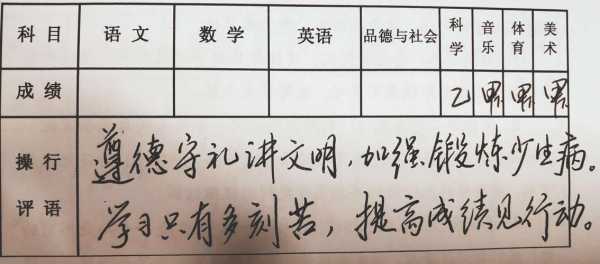 科目 语文 数学 英语 品德与社会 科学 音乐 体育 美术
成绩 乙
操行评语
遵德守礼讲文明,加强锻炼少生病。
学习只有多刻苦,提高成绩见行动。